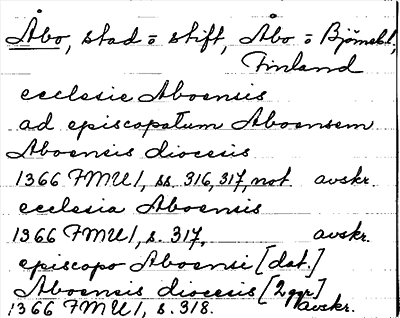 Åbo, stad o stift, Åbo o Björnebl,
Finland
ecclesie Aboensis
ad episcopatum Aboensem
Aboensis diocesis
1366 FMU I, ss. 316, 317, not avskr.
ecclesia Aboensis
1366 FMU I, s. 317. avskr.
episcopo Aboensi [dat.]
Aboensis diocesis [2 ggr]
1366 FMU I, s. 318. avskr.